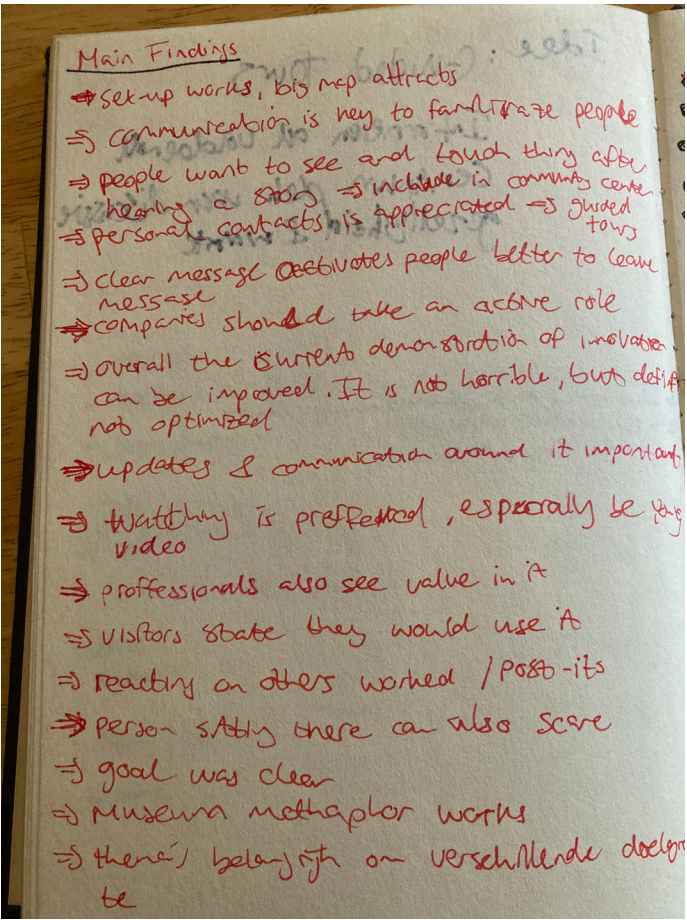 Main Findings
⇒ set-up works, big map attracts
⇒ communication is key to familiraze people
⇒ people want to see and touch thing after
hearing a story ⇒ include in community center
⇒ personal contacts is appreciated ⇒ guided
tours
⇒ clear message activates people better to leave
message
⇒ companies should take an active role
⇒ overall the current demonstration of inovation
can be improved. It is not horrible, but defin
not optimized
⇒ updates & communication around it important
⇒ watching is preffered, especially be young
video
⇒ proffessionals also see value in it
⇒ visitors state they would use it
⇒ reacting on others worked / post-its
⇒ person sitting there can also scare
⇒ goal was clear
⇒ Museum methaphor works
⇒ thema's belangrijk om verschillende doelgro
te